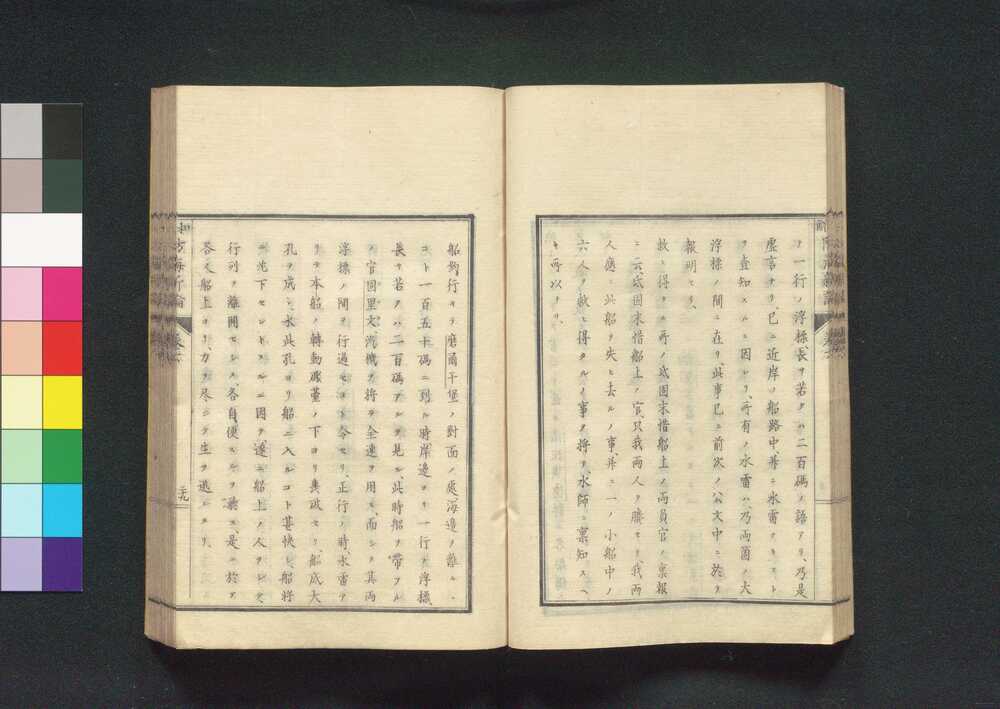 ヲ一行ノ浮標、長ヲ若クハ二百碼ノ語アリ、乃是
虚言ナリ、已ニ近岸ノ船路中、并ニ水雷ナキコト
ヲ査知スルニ因レリ、所有ノ水雷ハ、乃両箇ノ大
浮標ノ間ニ在リ此事已ニ前次ノ公文中ニ於テ
報明セリ、
救ヒ得タル所ノ底固木惜船上ノ両員官ノ稟報
ニ云、底固木惜船上ノ官、只我両人ヲ賸セリ我両
人應ニ此船ヲ失ヒ去ルノ事、并ニ一ノ小船中ノ
六人ヲ救ヒ得タルノ事ヲ将テ、水師ニ稟知スヘ
キ所以ナリ、
船駛行キテ磨爾干堡ノ對面ノ處海邊ヲ離ルヽ
コト一百五十碼ニ到ル時岸邊ヨリ一行ノ浮標
長サ若クハ二百碼アルヲ見ル此時船ヲ帶フル
ノ官固里文汽機ヲ将テ全速ヲ用ヒ、而シテ其両
浮標ノ間ヲ行過セヨト令セリ正行ノ時、水雷ア
リテ本船ノ轉動礮臺ノ下ヨリ轟破セリ、船底大
孔ヲ成シ水此孔ヨリ船ニ入ルコト甚快シ船将
ニ沈下セントスルニ因テ、遂ニ船上ノ人ヲシテ
行列ヲ離開セシメ、各自便スルヲ聽ス、是ニ於テ
各人船上ヨリ、力ヲ尽シテ生ヲ逃レタリ、
二十九